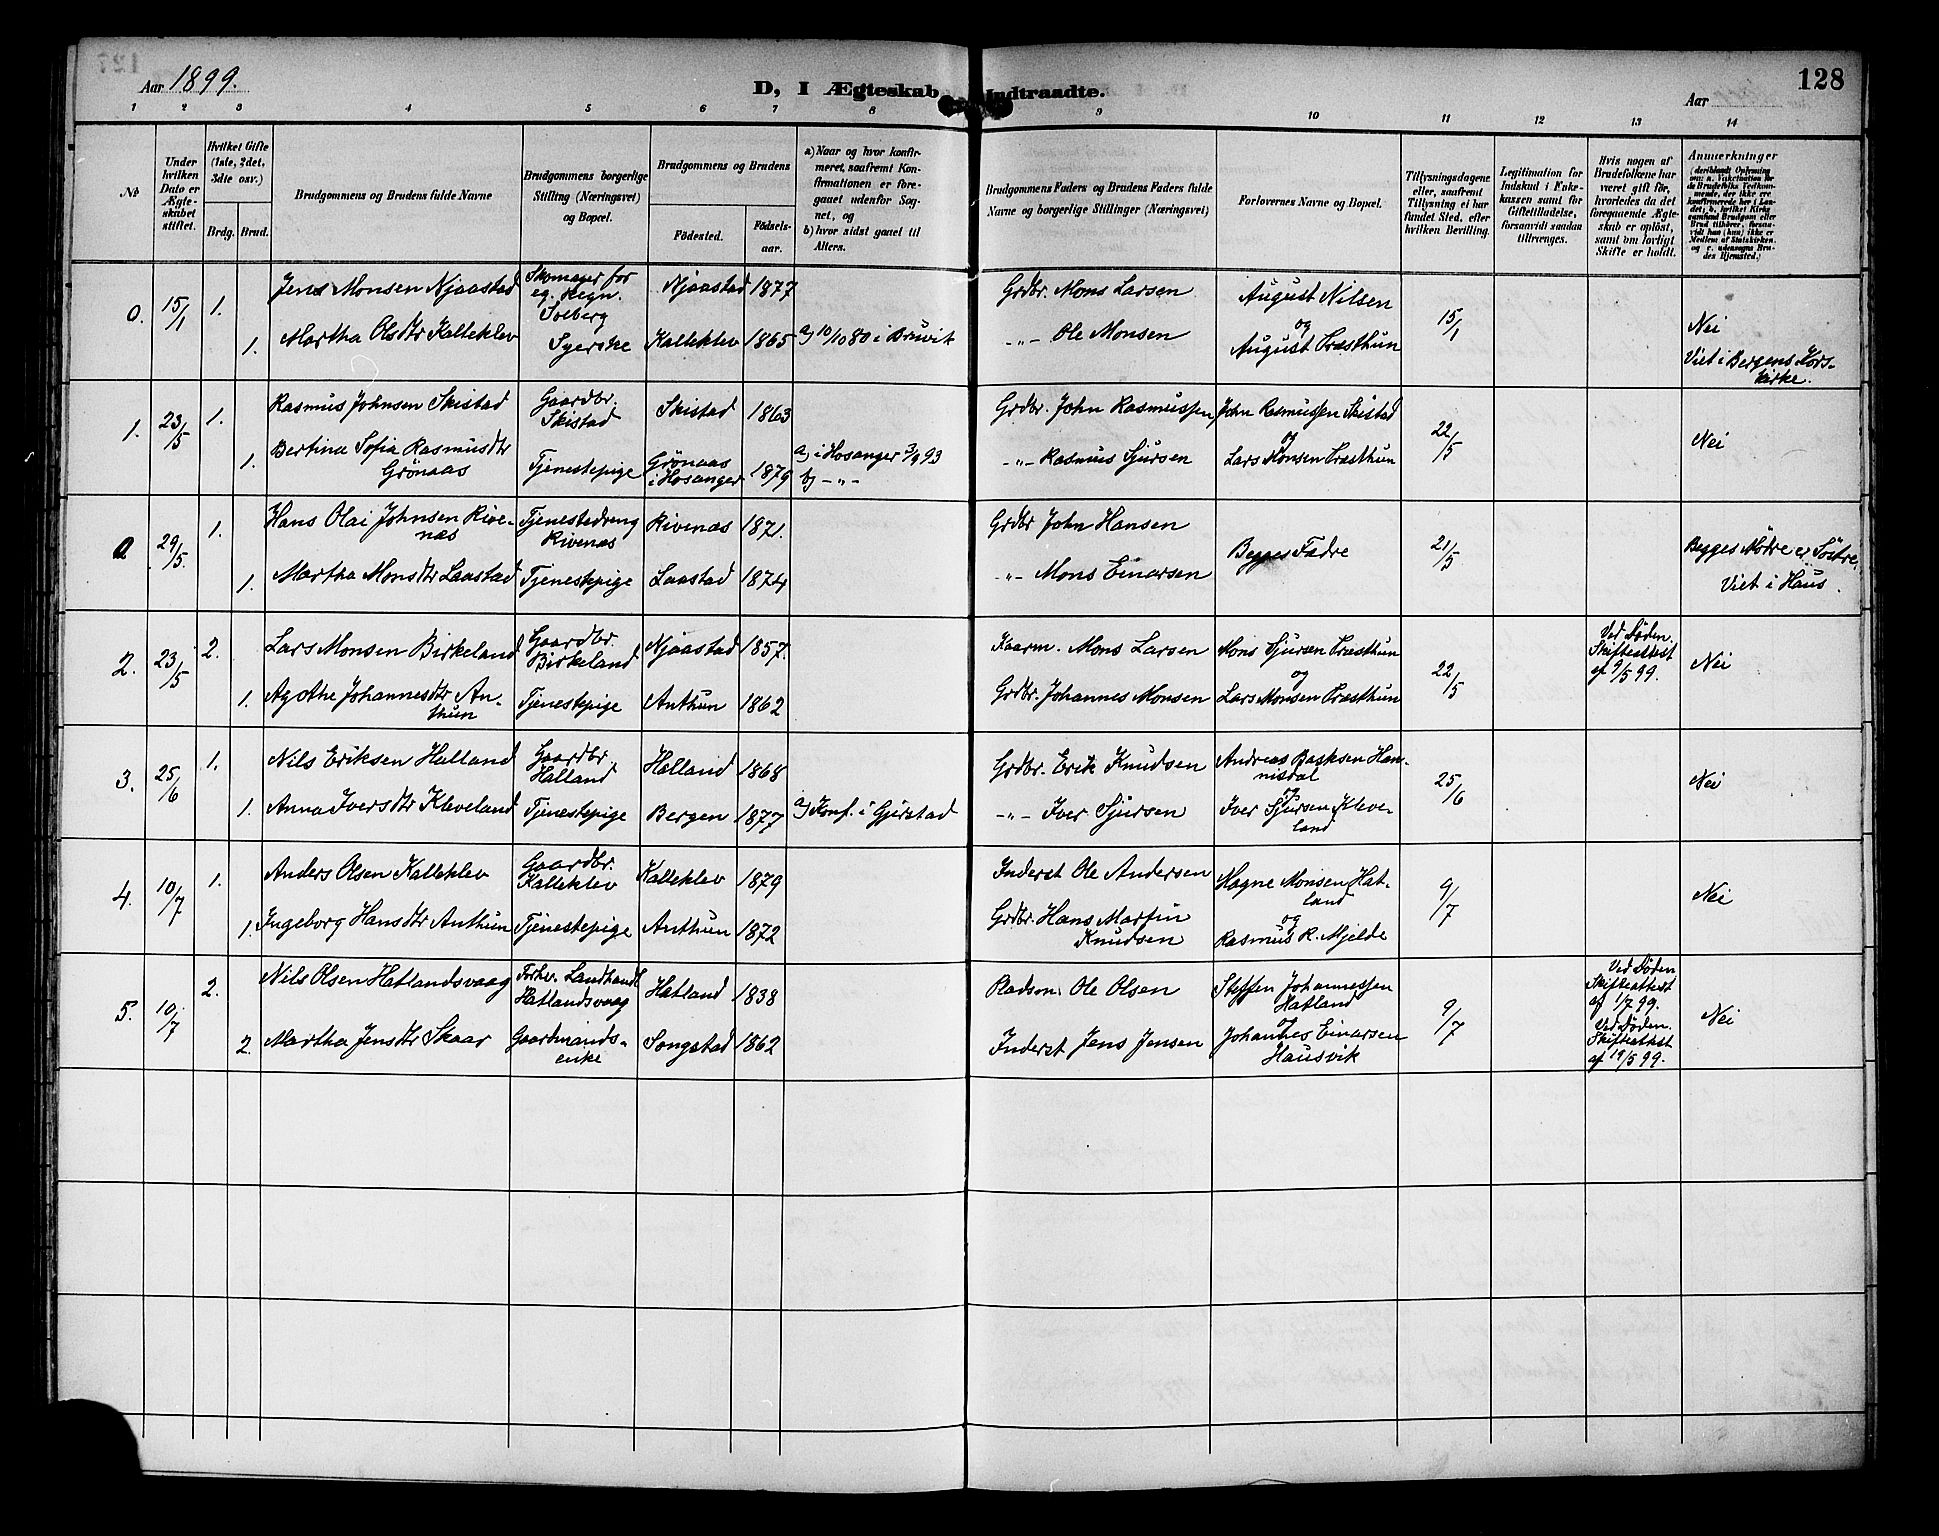 127
Aar 1899.
D, I Ægteskab Indtraadte.
Aar
128
1 2 3 4 5 6 7 8 9 10 11 12 13 14
No
Under hvilken Dato er Ægteskabet stiftet.
Hvilket Gifte (1ste, 2det, 3die osv.)
Brdg. Brud.
Brudgommens og Brudens fulde Navne
Brudgommens borgerlige Stilling (Næringsvei) og Bopæl.
Brudgommens og Brudens
Fødested.
Fødselsaar.
a) Naar og hvor konfirmeret, saafremt Konfirmationen er foregaaet udenfor Sognet, og
b) hvor sidst gaaet til Alters.
Brudgommens Faders og Brudens Faders fulde Navne og borgerlige Stillinger (Næringsvei)
Forlovernes Navne og Bopæl.
Tillysningsdagene eller, saafremt Tillysning ei har fundet Sted, efter hvilken Bevilling.
Legitimation for Indskud i Enkekassen samt for Giftetilladelse, forsaavidt saadan tiltrænges.
Hvis nogen af Brudefolkene har været gift før, hvorledes da det foregaaende Ægteskab er opløst, samt om lovligt Skifte er holdt.
Anmerkninger
(deriblandt Oplysning om: a. Vakcination for de Brudefolks Vedkommende, der ikke ere konfirmerede her i Landet; b. hvilket Kirkesamfund Brudgom eller Brud tilhører, forsaavidt han (hun) ikke er Medlem af Statskirken; og c. udensogns Brudes Hjemsted.)
0. 15/1 1. Jens Monsen Njaastad Skomager for eg. Regn. Solberg Njaastad 1877 Grdbr. Mons Larsen August Nilsen og August Træsthun 15/1
1. Martha Olsdtr Kalleklev Syerske Kalleklev 1865 a) 10/10 80 i Bruvik -"- Ole Monsen Nei Viet i Bergens Korskirke.
1. 23/5 1. Rasmus Johnsen Skistad Gaardbr. Skistad Skistad 1863 Grdbr. John Rasmussen John Rasmussen Skistad og Lars Monsen Træsthun 22/5 Nei
1. Bertina Sofia Rasmusdtr Grönaas Tjenestepige Grönaas i Hosanger 1879 a) i Hosanger 3/9 93 b) -"- -"- Rasmus Sjursen
0 29/5. 1. Hans Olai Johnsen Rivenæs Tjenestedreng Rivenæs Rivenæs 1871. Grdbr John Hansen Begges Fædre 21/5 Begges Mödre er Söstre. Viet i Haus.
1. Martha Monsdtr Laastad Tjenestepige Laastad 1874 -"- Mons Einarsen
2. 23/5 2. Lars Monsen Birkeland Gaardbr. Birkeland Njaastad 1857. Kaarm. Mons Larsen Mons Sjursen Træsthun og Lars Monsen Træsthun 22/5 Ved Döden. Skifteattest af 9/5 99. Nei
1. Agathe Johannesdtr Anthun Tjenestepige Anthun 1862 Grdbr. Johannes Monsen
3. 25/6 1. Nils Eriksen Halland Gaardbr. Halland Halland 1868 Grdbr. Erik Knudsen Andreas Hannisdal og Iver Sjursen Kleveland 25/6 Nei
1. Anna Iversdtr Kleveland Tjenestepige Bergen 1877 a) Konf. i Gjerstad -"- Iver Sjursen
4. 10/7 1. Anders Olsen Kalleklev Gaardbr. Kalleklev Kalleklev 1879 Inderst Ole Andersen Magne Monsen Hatland og Rasmus R. Mjelde 9/7 Nei
1. Ingeborg Hansdtr Anthun Tjenestepige Anthun 1872 Grdbr. Hans Martin Knudsen
5. 10/7 2. Nils Olsen Hatlandsvaag Forhv. Landhandl Hatlandsvaag Hatland 1838 Pladsm. Ole Olsen Steffen Johannessen Hatland og Johannes Einarsen Hausvik 9/7 Ved Döden Skifteattest af 1/7 99. Nei
2. Martha Jensdtr Skaar Gaardmandsenke Songstad 1862 Inderst Jens Jensen Ved Döden. Skifteattest af 19/5 99.